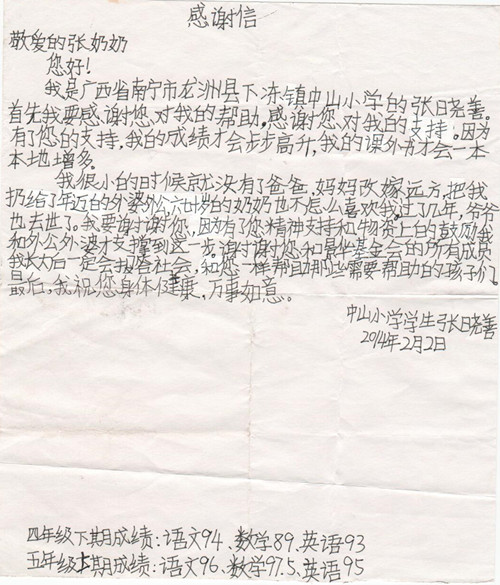 感谢信
敬爱的张奶奶
您好!
我是广西省南宁市龙洲县下冻镇中山小学的张晓善。
首先我要感谢您对我的帮助。感谢您对我的支持。因为
有了您的支持,我的成绩才会步步高升,我的课外书才会一本
本地增多。
我很小的时候就没有了爸爸,妈妈改嫁远方,把我
扔给了年迈的外婆外公,六七十岁的奶奶也不怎么喜欢我。过了几年,爷爷
也去世了。我要谢谢您,因为有了您精神支持和物资上的鼓励我
和外公外婆才支撑到这一步。谢谢您和晨华基金会的所有成员
我长大后一定会报答社会,和您一样帮助那些需要帮助的孩子们。
最后,我祝您身体健康,万事如意。
中山小学学生张晓善
2014年2月2日
四年级下期成绩:语文94、数学89、英语93
五年级上期成绩:语文96、数学97.5、英语95